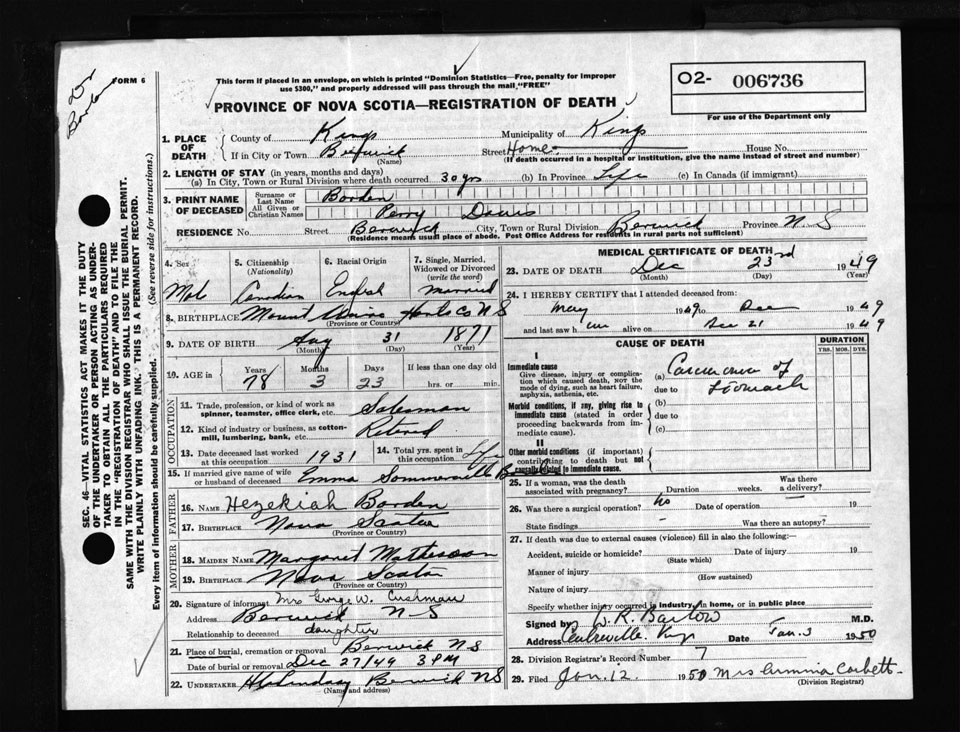 Dr Barlow
FORM 6
This form if placed in an envelope, on which is printed "Dominion Statistics—Free, penalty for improper
use $300," and properly addressed will pass through the mail "FREE"
PROVINCE OF NOVA SCOTIA—REGISTRATION OF DEATH
O2- 006736
For use of the Department only
SEC. 46—VITAL STATISTICS ACT MAKES IT THE DUTY
OF THE UNDERTAKER OR PERSON ACTING AS UNDER-
TAKER TO OBTAIN ALL THE PARTICULARS REQUIRED
IN THE "REGISTRATION OF DEATH" AND TO FILE THE
SAME WITH THE DIVISION REGISTRAR WHO SHALL ISSUE THE BURIAL PERMIT.
WRITE PLAINLY WITH UNFADING INK. THIS IS A PERMANENT RECORD.
Every item of information should be carefully supplied. (See reverse side for instructions.)
1. PLACE OF DEATH County of Kings Municipality of Kings
If in City or Town Berwick (Name) Street Home House No.
(If death occurred in a hospital or institution, give the name instead of street and number)
2. LENGTH OF STAY (in years, months and days)
(a) In City, Town or Rural Division where death occurred 30 yrs (b) In Province Life (c) In Canada (if immigrant)
3. PRINT NAME OF DECEASED
Surname or Last Name Borden
All Given or Christian Names Perry Davis
RESIDENCE No. Street Berwick City, Town or Rural Division Berwick Province N S
(Residence means usual place of abode. Post Office Address for residents in rural parts not sufficient)
4. Sex 5. Citizenship (Nationality) 6. Racial Origin 7. Single, Married, Widowed or Divorced (write the word)
Mal Canadian English married
8. BIRTHPLACE Mount Hants Co N S
(Province or Country)
9. DATE OF BIRTH Aug 31 1871
(Month) (Day) (Year)
10. AGE in Years Months Days If less than one day old
78 3 23 hrs. or min.
OCCUPATION
11. Trade, profession, or kind of work as spinner, teamster, office clerk, etc. Salesman
12. Kind of industry or business, as cotton-mill, lumbering, bank, etc. Retired
13. Date deceased last worked at this occupation 1931 14. Total yrs. spent in this occupation Life
15. If married give name of wife or husband of deceased Emma Sommerville Borden
FATHER
16. NAME Hezekiah Borden
17. BIRTHPLACE Nova Scotia
(Province or Country)
MOTHER
18. MAIDEN NAME Margaret Matheson
19. BIRTHPLACE Nova Scotia
(Province or Country)
20. Signature of informant Mrs George W. Cushman
Address Berwick N S
Relationship to deceased daughter
21. Place of burial, cremation or removal Berwick N S
Date of burial or removal Dec 27/49 3 PM
22. UNDERTAKER Lindsay Berwick NS
(Name and address)
MEDICAL CERTIFICATE OF DEATH
23. DATE OF DEATH Dec 23rd 1949
(Month) (Day) (Year)
24. I HEREBY CERTIFY that I attended deceased from:
May 1949 to Dec 1949
and last saw him alive on Dec 21 1949
CAUSE OF DEATH
DURATION
YRS. MOS. DYS.
I
Immediate cause
Give disease, injury or complication which caused death, not the mode of dying, such as heart failure, asphyxia, asthenia, etc.
(a) Carcinoma of
due to stomach
Morbid conditions, if any, giving rise to immediate cause (stated in order proceeding backwards from immediate cause).
(b)
due to
(c)
II
Other morbid conditions (if important) contributing to death but not causally related to immediate cause.
25. If a woman, was the death associated with pregnancy? Duration weeks. Was there a delivery?
26. Was there a surgical operation? No Date of operation 19
State findings – Was there an autopsy? –
27. If death was due to external causes (violence) fill in also the following:—
Accident, suicide or homicide? Date of injury 19
(State which)
Manner of injury
(How sustained)
Nature of injury
Specify whether injury occurred in industry, in home, or in public place
Signed by D. R. Barlow M.D.
Address Centreville, Kings Date Jan. 3 1950
28. Division Registrar's Record Number 7
29. Filed Jan. 12 1950 Mrs Corbett
(Division Registrar)